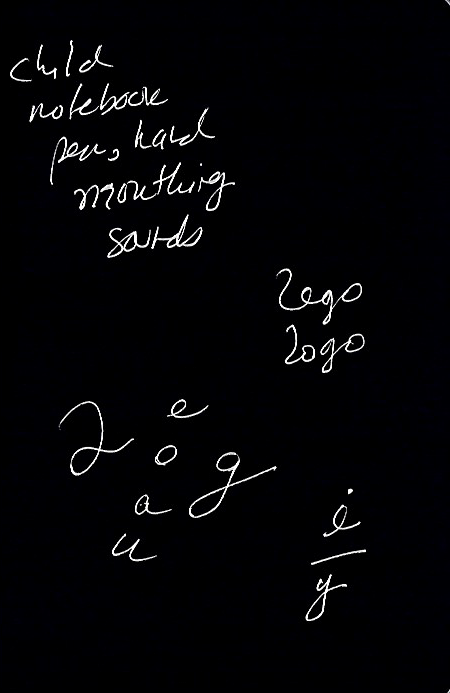 child
notebook
pen, hand
mouthing
sounds
Lego
Logo
L e
o g
a
u
i
y